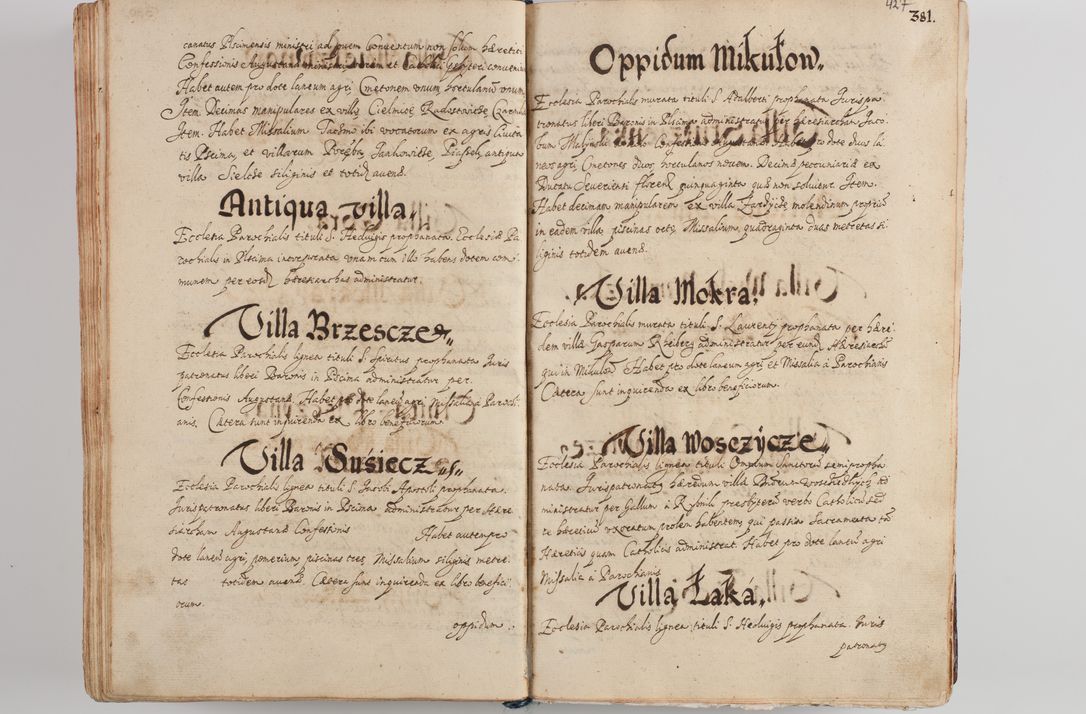 canatus Plscinensis ministri ad quem Conventum non solum hæretici
Confessionis Augustanæ ministri, verum et Catholici presbyteri conveniunt
Habet autem pro dote laneum agri, Cmetonem vnum, hortulanum vnum
Item Decimas manipulares ex villis Cielmice, Radostowice,
Item. Habet Missalium Taczmo ibi vocatorum ex agris Civita
tis Plscina, et villarum Poręba, Jankowicze, Piasek, antiqua
villa Sielcze siliginis et totidem avenæ.
Antiqua villa
Ecclesia Parochialis tituli S. Hedvigis prophanata, Ecclesiæ Pa
rochiali in Plscina incorporata vnam cum illo habens dotem com
munem per eosdem hæresiarchas administratur.
Villa Brzescze
Ecclesia Parochialis lignea tituli S. Spiritus prophanata Juris
patronatus liberi Baronis in Plscina administratur per
Confessionis Augustanæ. Habet pro dote laneum agri, missalia à Parochi
anis. Cætera sunt inquirenda ex libro beneficiorum.
Villa Susiecz
Ecclesia Parochialis lignea tituli S. Jacobi Apostoli prophanata.
Jurispatronatus liberi Baronis in Plscina administratur per Hære
siarcham Augustanæ Confessionis Habet autem pro
dote laneum agri, pomerium, piscinas tres Missalium siliginis metre
tas totidem avenæ. Cætera sunt inquirenda ex libro benefici
orum.
oppidum
427
381.
Oppidum Mikułow
Ecclesia Parochialis murata tituli S. Adalberti prophanata Jurispa
tronatus liberi Baronis in Plscina administratur per hæresiarcham Jaco
bum Confessionis Augustanæ Habet pro dote duos la
neos agri, Cmetones duos, hortulanos novem. Decimæ pecuniariæ ex
Ducatu Severiensi florenos quinquaginta quæ non solvitur Item.
Habet decimam manipularem ex villa Zardzicze, molendinum proprium
in eadem villa, piscinas octo Missalium, quadraginta duas metretas si
liginis totidem avenæ.
Villa Mokra
Ecclesia Parochialis murata tituli S. Laurentij prophanata per hære
dem villæ Gasparum administratur per eundem Hæresiarcham
qui in Mikułow Habet pro dote laneum agri, et Missalia à Parochianis
Cætera sunt inquirenda ex libro beneficiorum.
Villa Wosczycze
Ecclesia Parochialis lignea tituli Omnium Sanctorum semipropha
nata. Jurispatronatus hæredum villæ ad
ministratur per Gallum à Rybnik presbyterum verbo Catholicum sed
re hæreticum vxoratum prolem habentem, qui passim Sacramenta tam
Hæreticis quam Catholicis administrat. Habet pro dote laneum agri
Missalia à Parochianis
Villa Łaká
Ecclesia Parochialis lignea tituli S. Hedvigis prophanata. Juris
patronatus